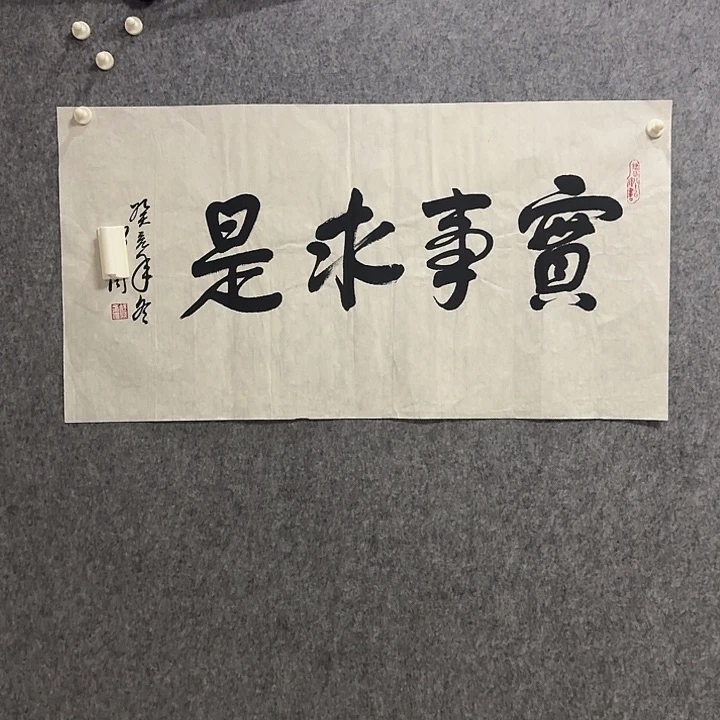 實事求是
癸亥年冬